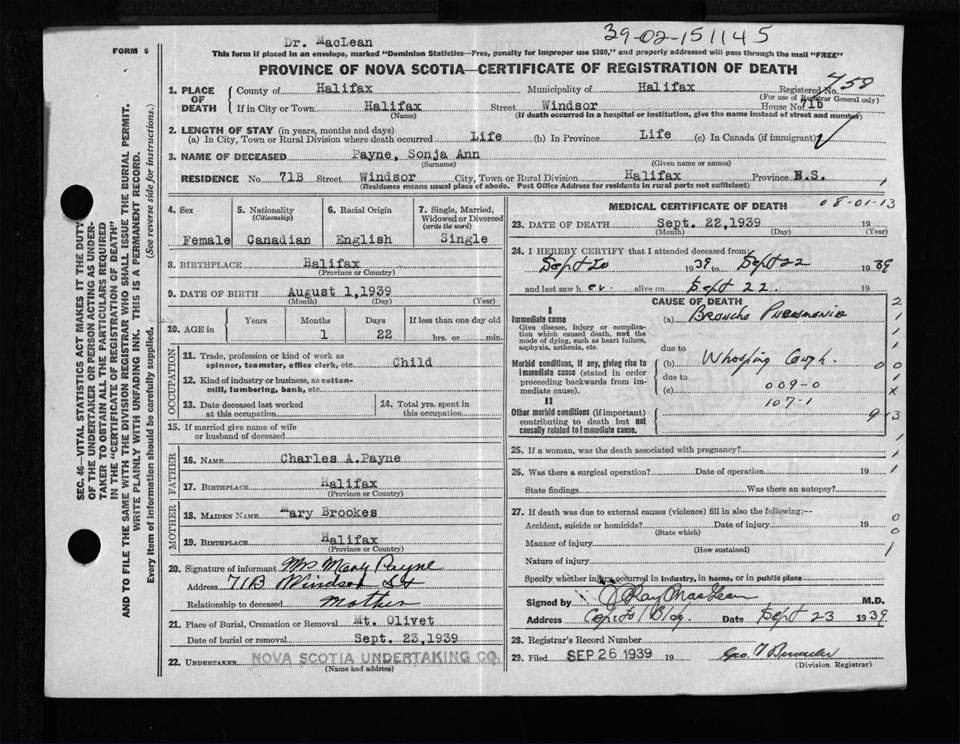 Dr. MacLean
39-02-151145
FORM 6
This form if placed in an envelope, marked "Dominion Statistics—Free, penalty for improper use $300," and properly addressed will pass through the mail "FREE"
PROVINCE OF NOVA SCOTIA—CERTIFICATE OF REGISTRATION OF DEATH
SEC. 46—VITAL STATISTICS ACT MAKES IT THE DUTY
OF THE UNDERTAKER OR PERSON ACTING AS UNDER-
TAKER TO OBTAIN ALL THE PARTICULARS REQUIRED
IN THE "CERTIFICATE OF REGISTRATION OF DEATH"
AND TO FILE THE SAME WITH THE DIVISION REGISTRAR WHO SHALL ISSUE THE BURIAL PERMIT.
WRITE PLAINLY WITH UNFADING INK. THIS IS A PERMANENT RECORD.
Every item of information should be carefully supplied. (See reverse side for instructions.)
1. PLACE OF DEATH
County of Halifax Municipality of Halifax Registered No. 758
(For use of Registrar General only)
If in City or Town Halifax Street Windsor House No. 71B
(Name) (If death occurred in a hospital or institution, give the name instead of street and number)
2. LENGTH OF STAY (in years, months and days)
(a) In City, Town or Rural Division where death occurred Life (b) In Province Life (c) In Canada (if immigrant) ✓
3. NAME OF DECEASED Payne, Sonja Ann
(Surname) (Given name or names)
RESIDENCE No. 71B Street Windsor City, Town or Rural Division Halifax Province N.S.
(Residence means usual place of abode. Post Office Address for residents in rural parts not sufficient)
4. Sex
Female
5. Nationality
(Citizenship)
Canadian
6. Racial Origin
English
7. Single, Married,
Widowed or Divorced
(write the word)
Single
8. BIRTHPLACE Halifax
(Province or Country)
9. DATE OF BIRTH August 1, 1939
(Month) (Day) (Year)
10. AGE in
Years Months Days If less than one day old
1 22 hrs. or min.
OCCUPATION
11. Trade, profession or kind of work as
spinner, teamster, office clerk, etc. Child
12. Kind of industry or business, as cotton-
mill, lumbering, bank, etc.
13. Date deceased last worked
at this occupation
14. Total yrs. spent in
this occupation
15. If married give name of wife
or husband of deceased
FATHER
16. NAME Charles A. Payne
17. BIRTHPLACE Halifax
(Province or Country)
MOTHER
18. MAIDEN NAME Mary Brookes
19. BIRTHPLACE Halifax
(Province or Country)
20. Signature of informant Mrs Mary Payne
Address 71B Windsor St
Relationship to deceased Mother
21. Place of Burial, Cremation or Removal Mt. Olivet
Date of burial or removal Sept. 23, 1939
22. UNDERTAKER NOVA SCOTIA UNDERTAKING CO.
(Name and address)
MEDICAL CERTIFICATE OF DEATH
08-01-13
23. DATE OF DEATH Sept. 22, 1939 19
(Month) (Day) (Year)
24. I HEREBY CERTIFY that I attended deceased from
Sept 20 1939 to Sept 22 1939
and last saw h er alive on Sept 22. 19
CAUSE OF DEATH
I
Immediate cause
Give disease, injury or complica-
tion which caused death, not the
mode of dying, such as heart failure,
asphyxia, asthenia, etc.
(a) Broncho Pneumonia
due to
Morbid conditions, if any, giving rise to
immediate cause (stated in order
proceeding backwards from im-
mediate cause).
(b) Whooping Cough.
due to
(c) 009-0
107-1
II
Other morbid conditions (if important)
contributing to death but not
causally related to immediate cause.
25. If a woman, was the death associated with pregnancy?
26. Was there a surgical operation? Date of operation 19
State findings Was there an autopsy?
27. If death was due to external causes (violence) fill in also the following:—
Accident, suicide or homicide? Date of injury 19
(State which)
Manner of injury
(How sustained)
Nature of injury
Specify whether injury occurred in industry, in home, or in public place
Signed by J. Ray MacLean M.D.
Address Capitol Bldg. Date Sept 23 1939
28. Registrar's Record Number
29. Filed SEP 26 1939 19
(Division Registrar)